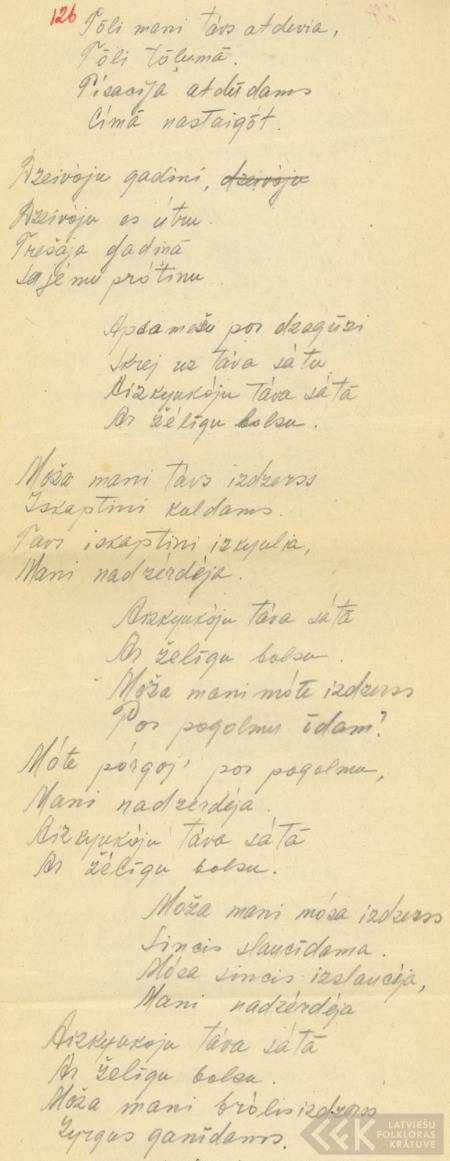 126
Tōli mani tāvs atdevia,
Tōli tōļumā.
Pīsacīja atdūdams
Cīmā nastaigōt.
Dzeivòju gadini, dzeivòju
Dzeivòju es ūtru.
Trešàja gadiņā
Sajèmu pròtiņu
Apsamešu por dzagūzi
Skrej uz tàva sàtu
Aizkyukòju tàva sàtā
Ar žèlīgu bolsu.
Moža mani tàvs izdzerss
Izkaptini kuldams.
Tàvs izkaptini izkyulia,
Mani nadzerdèja.
Aizkyukòju tàva sàtā
Ar želīgu bolsu.
Moža mani mòte izdzerss
Por pogolmu īdam?
Mòte pórgoj' por pogolmu,
Mani nadzèrdèja.
Aizkyukòju tàva sàtā
Ar žèlīgu bolsu.
Moža mani mòsa izdzerss
Sincis slaucīdama.
Mòsa sincis izslaucèja,
Mani nadzèrdèja
Aizkyukoju tàva sàtā
Ar želīgu bolsu.
Moža mani bròlis izdzerss
Zyrgus ganīdams.
LATVIEŠU
FOLKLORAS
KRATUVE